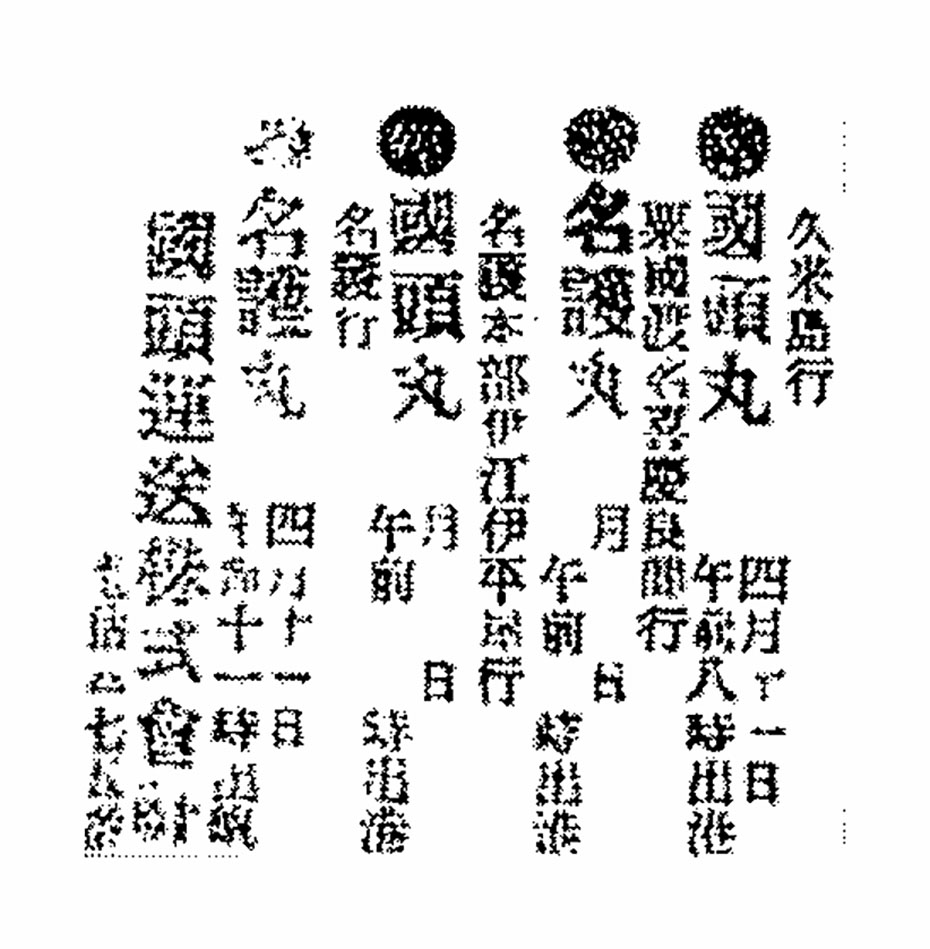 久米島行
國頭丸
四月十一日
午前八時出港
粟國渡名喜慶良間行
名護丸
月 日
午前 時出港
名護本部伊江伊平屋行
國頭丸
月 日
午前 時出港
名護行
名護丸
四月十一日
午前十一時出帆
國頭運送株式會社
電話 七 番